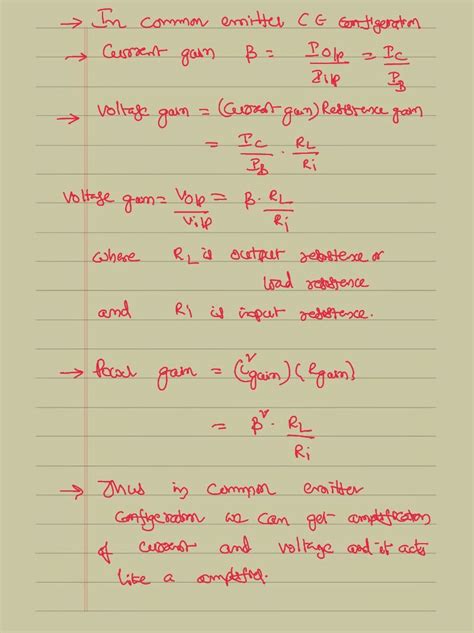 → In common emitter CE configeration
→ Current gain β = I o/p / I i/p = I_C / I_B
→ Voltage gain = (Current gain) Resistence gain
= I_C / I_B . R_L / Ri
Voltage gain = V o/p / V i/p = β . R_L / Ri
where R_L is output resistence or
load resistence
and Ri is input resistence.
→ Power gain = (C²gain) (Rgain)
= β² . R_L / Ri
→ Thus in common emitter
configeration we can get amplification
of current and voltage and it acts
like a amplifier.